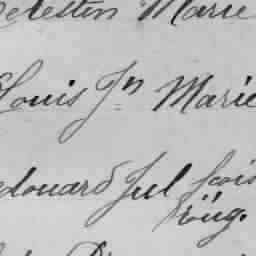 Celestin Marie
Louis Jn Marie
edouard Jul fcois
Eug.